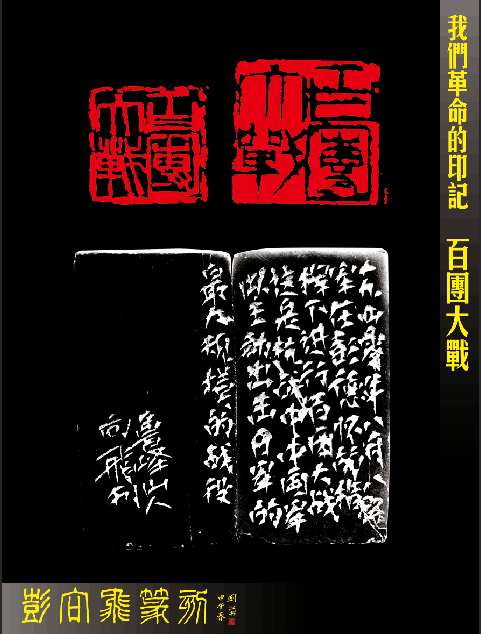 我們革命的印記
百團大戰
百團
大戰
百團
大戰
年八月八路
军在彭德怀的指
挥下进行百团大战
这是抗战中中国军
队主动出击日军的
最大规模的战役
山人
向飛刻
彭向飛篆刻